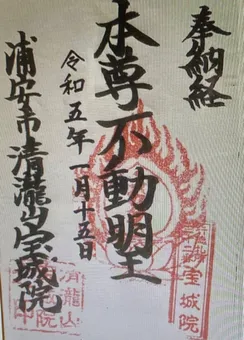 奉納経
本尊不動明王
令和五年一月十五日
浦安市清瀧山宝城院
宝城院
清瀧山
院
印